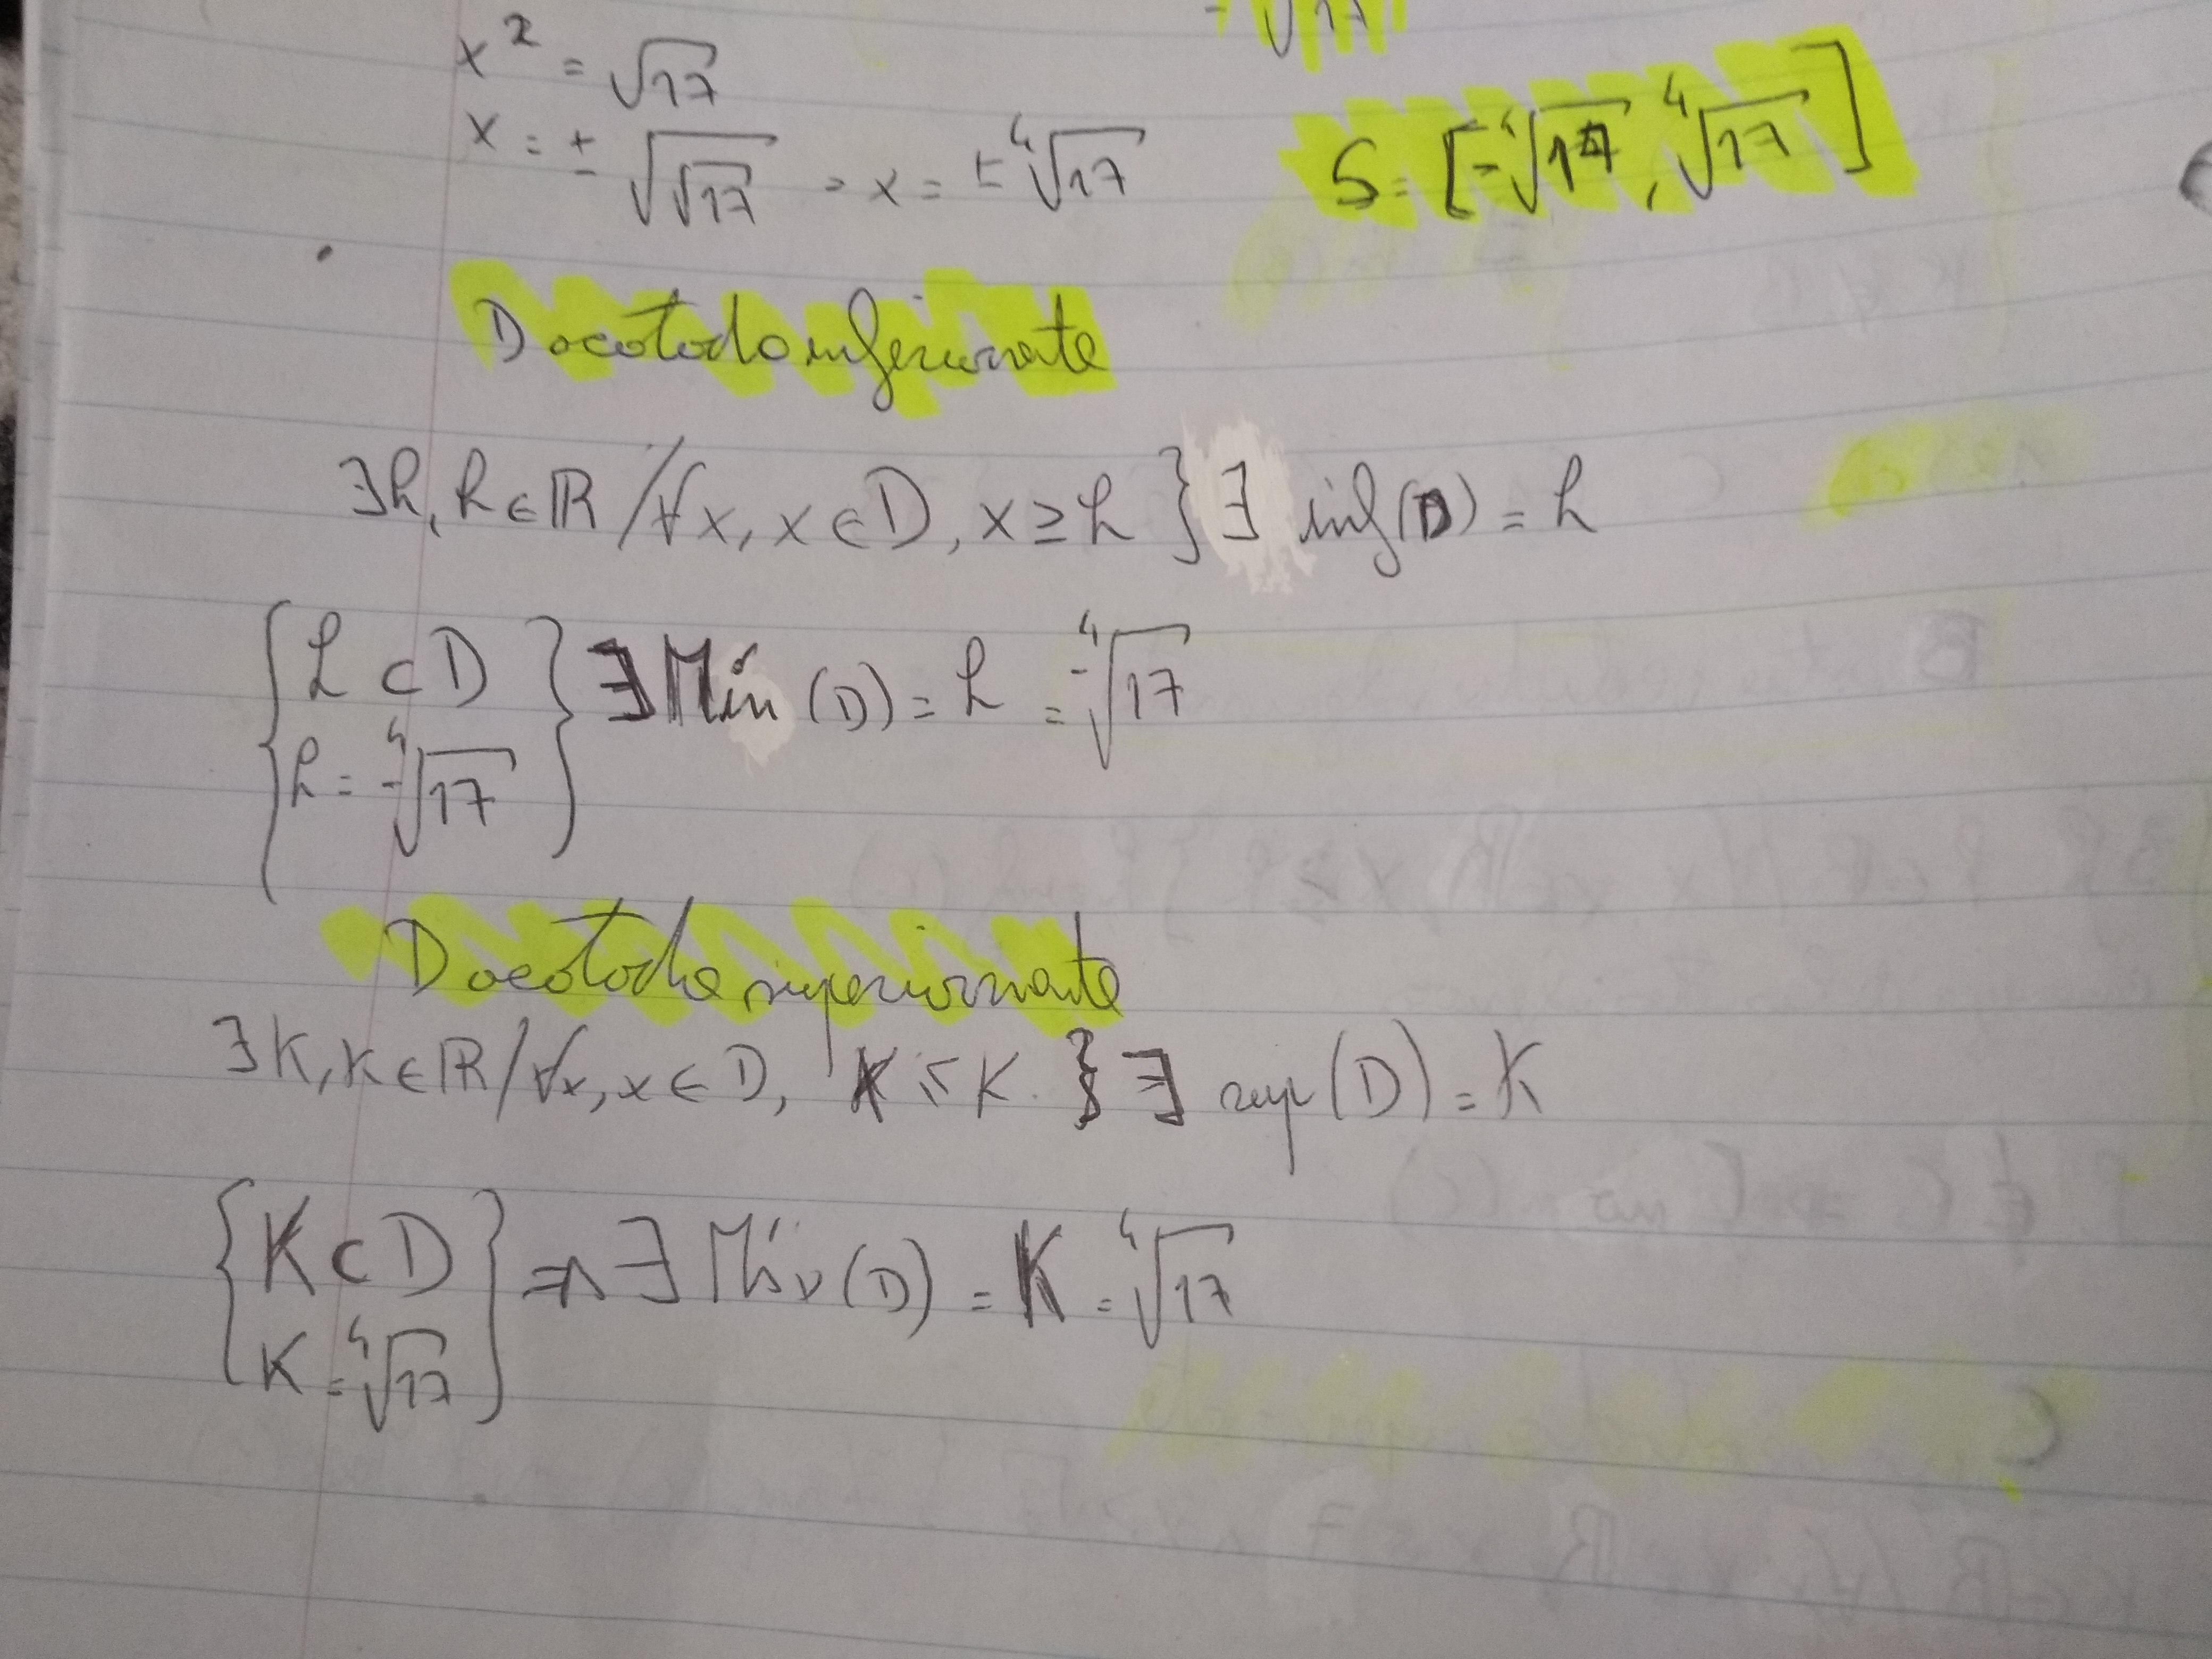 -√17
x² = √17
x = ± √√17 = x = ± ⁴√17
S = [-⁴√17, ⁴√17]
D acotado inferiormente
∃h, h∈ℝ / ∀x, x∈D, x≥h } ∃ inf(D) = h
{ h ⊂ D } ∃ Mín (D) = h = -⁴√17
h = -⁴√17
D acotado superiormente
∃K, K∈ℝ / ∀x, x∈D, x ≤ K. } ∃ sup(D) = K
{ K ⊂ D } ⇒ ∃ Máx (D) = K = ⁴√17
K = ⁴√17